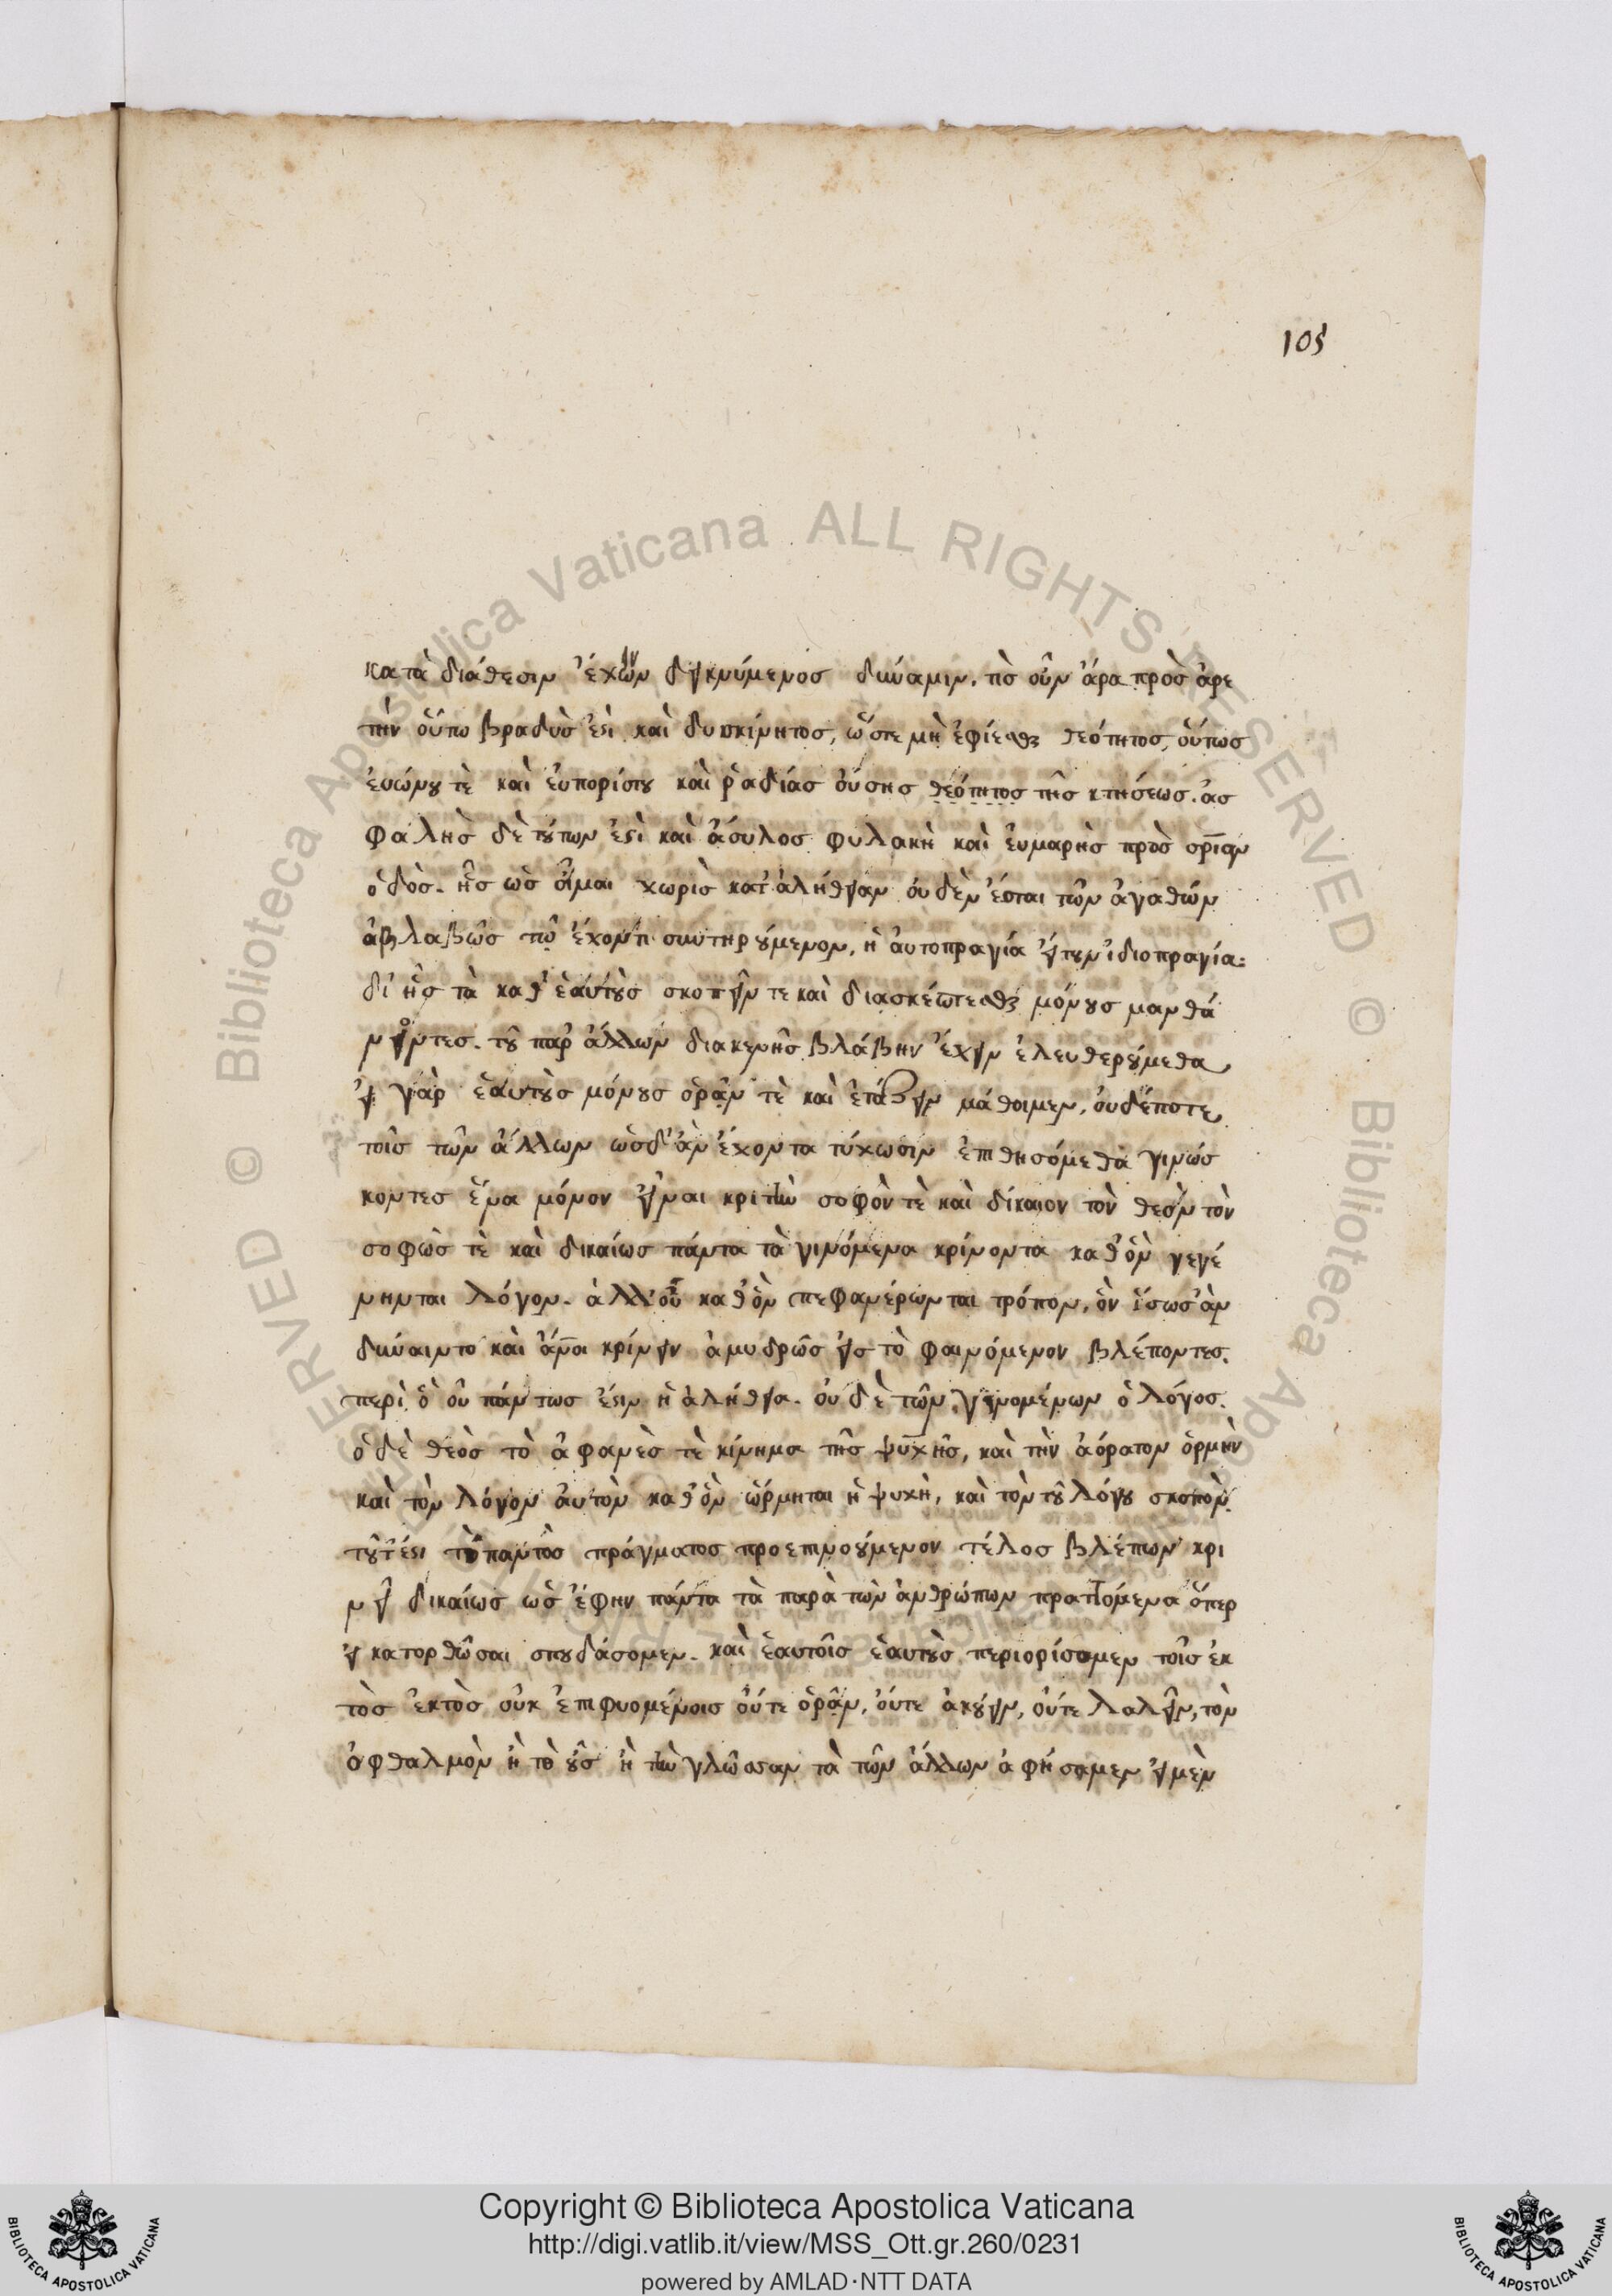 105
κατὰ διάθεσιν ἔχων δεικνύμενος δύναμιν. τίς οὖν ἄρα πρὸς ἀρε
τὴν οὕτω βραδύς ἐστι καὶ δυσκίνητος, ὥστε μὴ ἐφίεσθαι θεότητος, οὕτως
εὐώνου τὲ καὶ εὐπορίστου καὶ ῥαδίας οὔσης θεότητος τῆς κτήσεως. ἀσ
φαλὴς δὲ τούτων ἐστὶ καὶ ἄσυλος φυλακὴ καὶ εὐμαρὴς πρὸς σρ̅ίαν
ὁδὸς. ἧς ὡς οἶμαι χωρὶς κατ' ἀλήθειαν οὐδὲν ἔσται τῶν ἀγαθῶν
ἀβλαβῶς τῷ ἔχοντι συντηρούμενον, ἡ αὐτοπραγία εἴτουν ἰδιοπραγία:
δι' ἧς τὰ καθ' ἑαυτοὺς σκοπεῖν τε καὶ διασκέπτεσθαι μόνους μανθά
νοντες. τοῦ παρ' ἄλλων διακενῆς βλάβην ἔχειν ἐλευθερούμεθα
εἰ γὰρ ἑαυτοὺς μόνους ὁρᾶν τὲ καὶ ἐτάζειν μάθοιμεν, οὐδέποτε
τοῖς τῶν ἄλλων ὡσδ' ἂν ἔχοντα τύχωσιν ἐπιθησόμεθα γινώσ
κοντες ἕνα μόνον εἶναι κριτὴν σοφὸν τὲ καὶ δίκαιον τὸν θεὸν τὸν
σοφῶς τὲ καὶ δικαίως πάντα τὰ γινόμενα κρίνοντα καθ' ὃν γεγέ
νηνται λόγον. ἀλλ' οὐ καθ' ὃν πεφανέρωνται τρόπον, ὃν ἴσως ἂν
δύναιντο καὶ ἄν̅οι κρίνειν ἀμυδρῶς εἰς τὸ φαινόμενον βλέποντες.
περὶ ὃ οὐ πάντως ἐστὶν ἡ ἀλήθεια. οὐδὲ τῶν γινομένων ὁ λόγος.
ὁ δὲ θεὸς τὸ ἀφανὲς τὲ κίνημα τῆς ψυχῆς, καὶ τὴν ἀόρατον ὁρμὴν
καὶ τὸν λόγον αὐτὸν καθ' ὃν ὥρμηται ἡ ψυχὴ, καὶ τὸν τοῦ λόγου σκοπὸν.
τοῦτ' ἔστι τὸ παντὸς πράγματος προεπινούμενον τέλος βλέπων κρι
νεῖ δικαίως ὡς ἔφην πάντα τὰ παρὰ τῶν ἀνθρώπων πραττόμενα ὅπερ
εἰ κατορθῶσαι σπουδάσομεν. καὶ ἑαυτοῖς ἑαυτοὺς περιορίσομεν τοῖς ἐκ
τὸς ἐκτὸς οὐκ ἐπιφυομένοις οὔτε ὁρᾶν, οὔτε ἀκούειν, οὔτε λαλεῖν, τὸν
ὀφθαλμὸν ἢ τὸ οὖς ἢ τὴν γλῶσσαν τὰ τῶν ἄλλων ἀφήσομεν εἰ μὲν
Copyright © Biblioteca Apostolica Vaticana
http://digi.vatlib.it/view/MSS_Ott.gr.260/0231
powered by AMLAD·NTT DATA